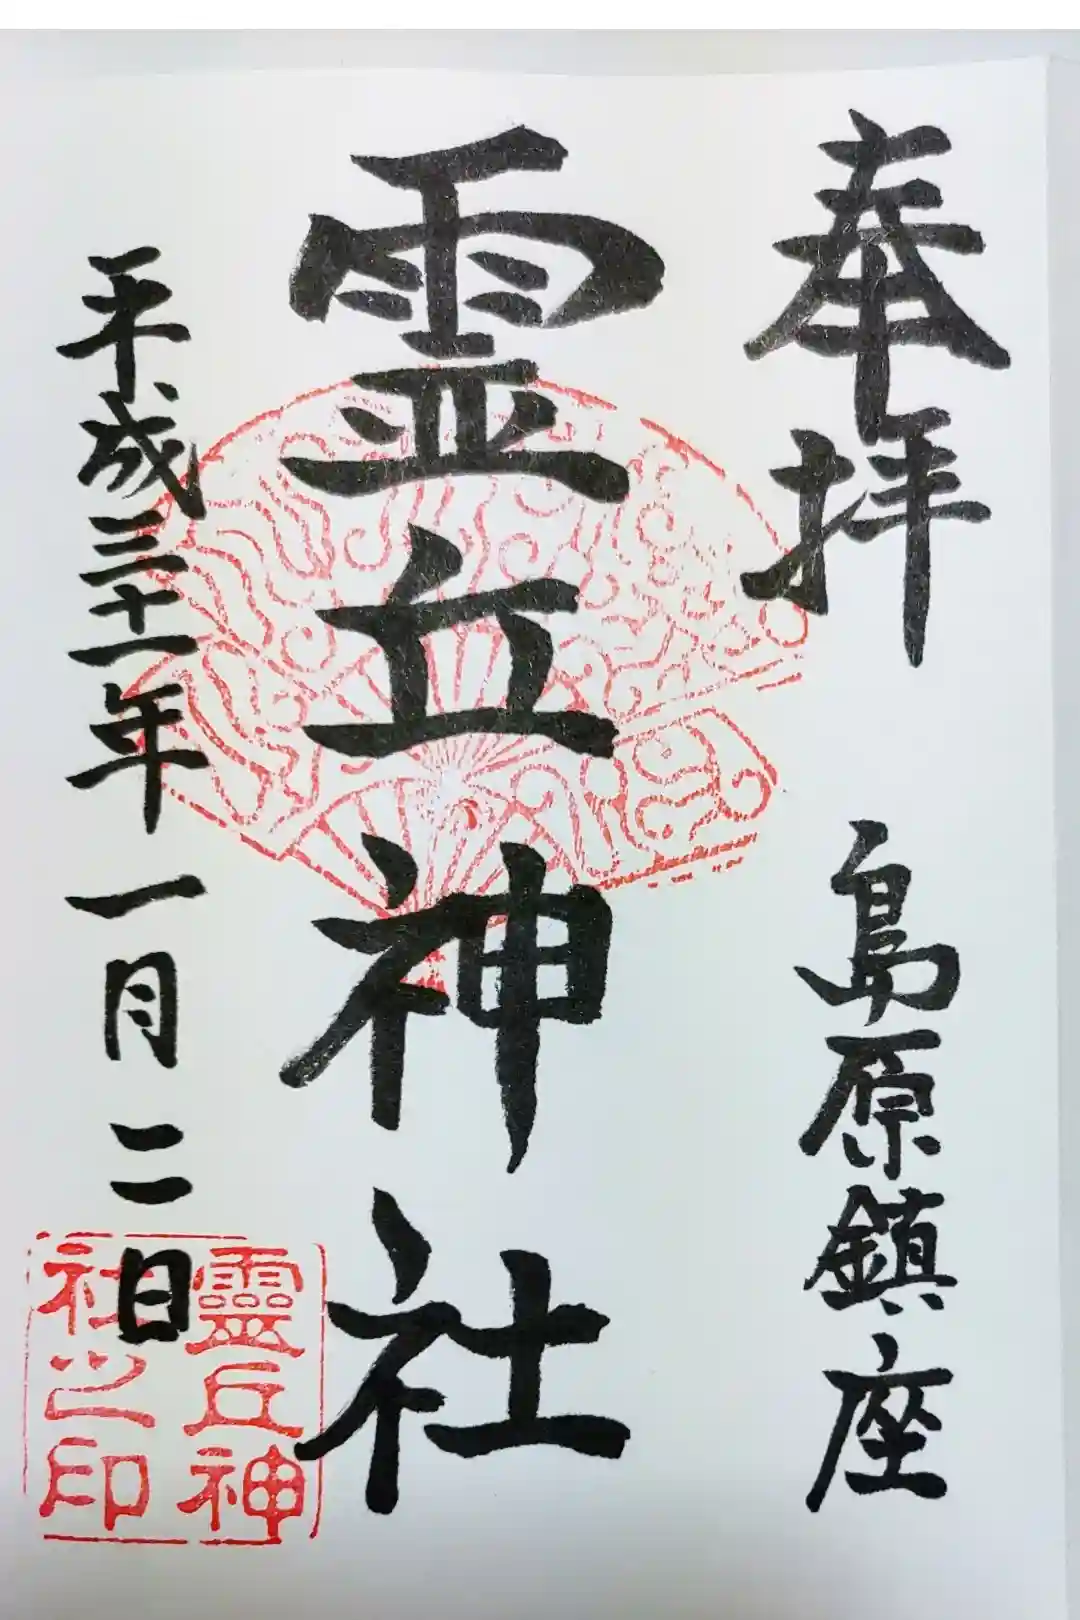 奉拝　島原鎮座
霊丘神社
平成三十一年一月二日
靈丘神
社之印